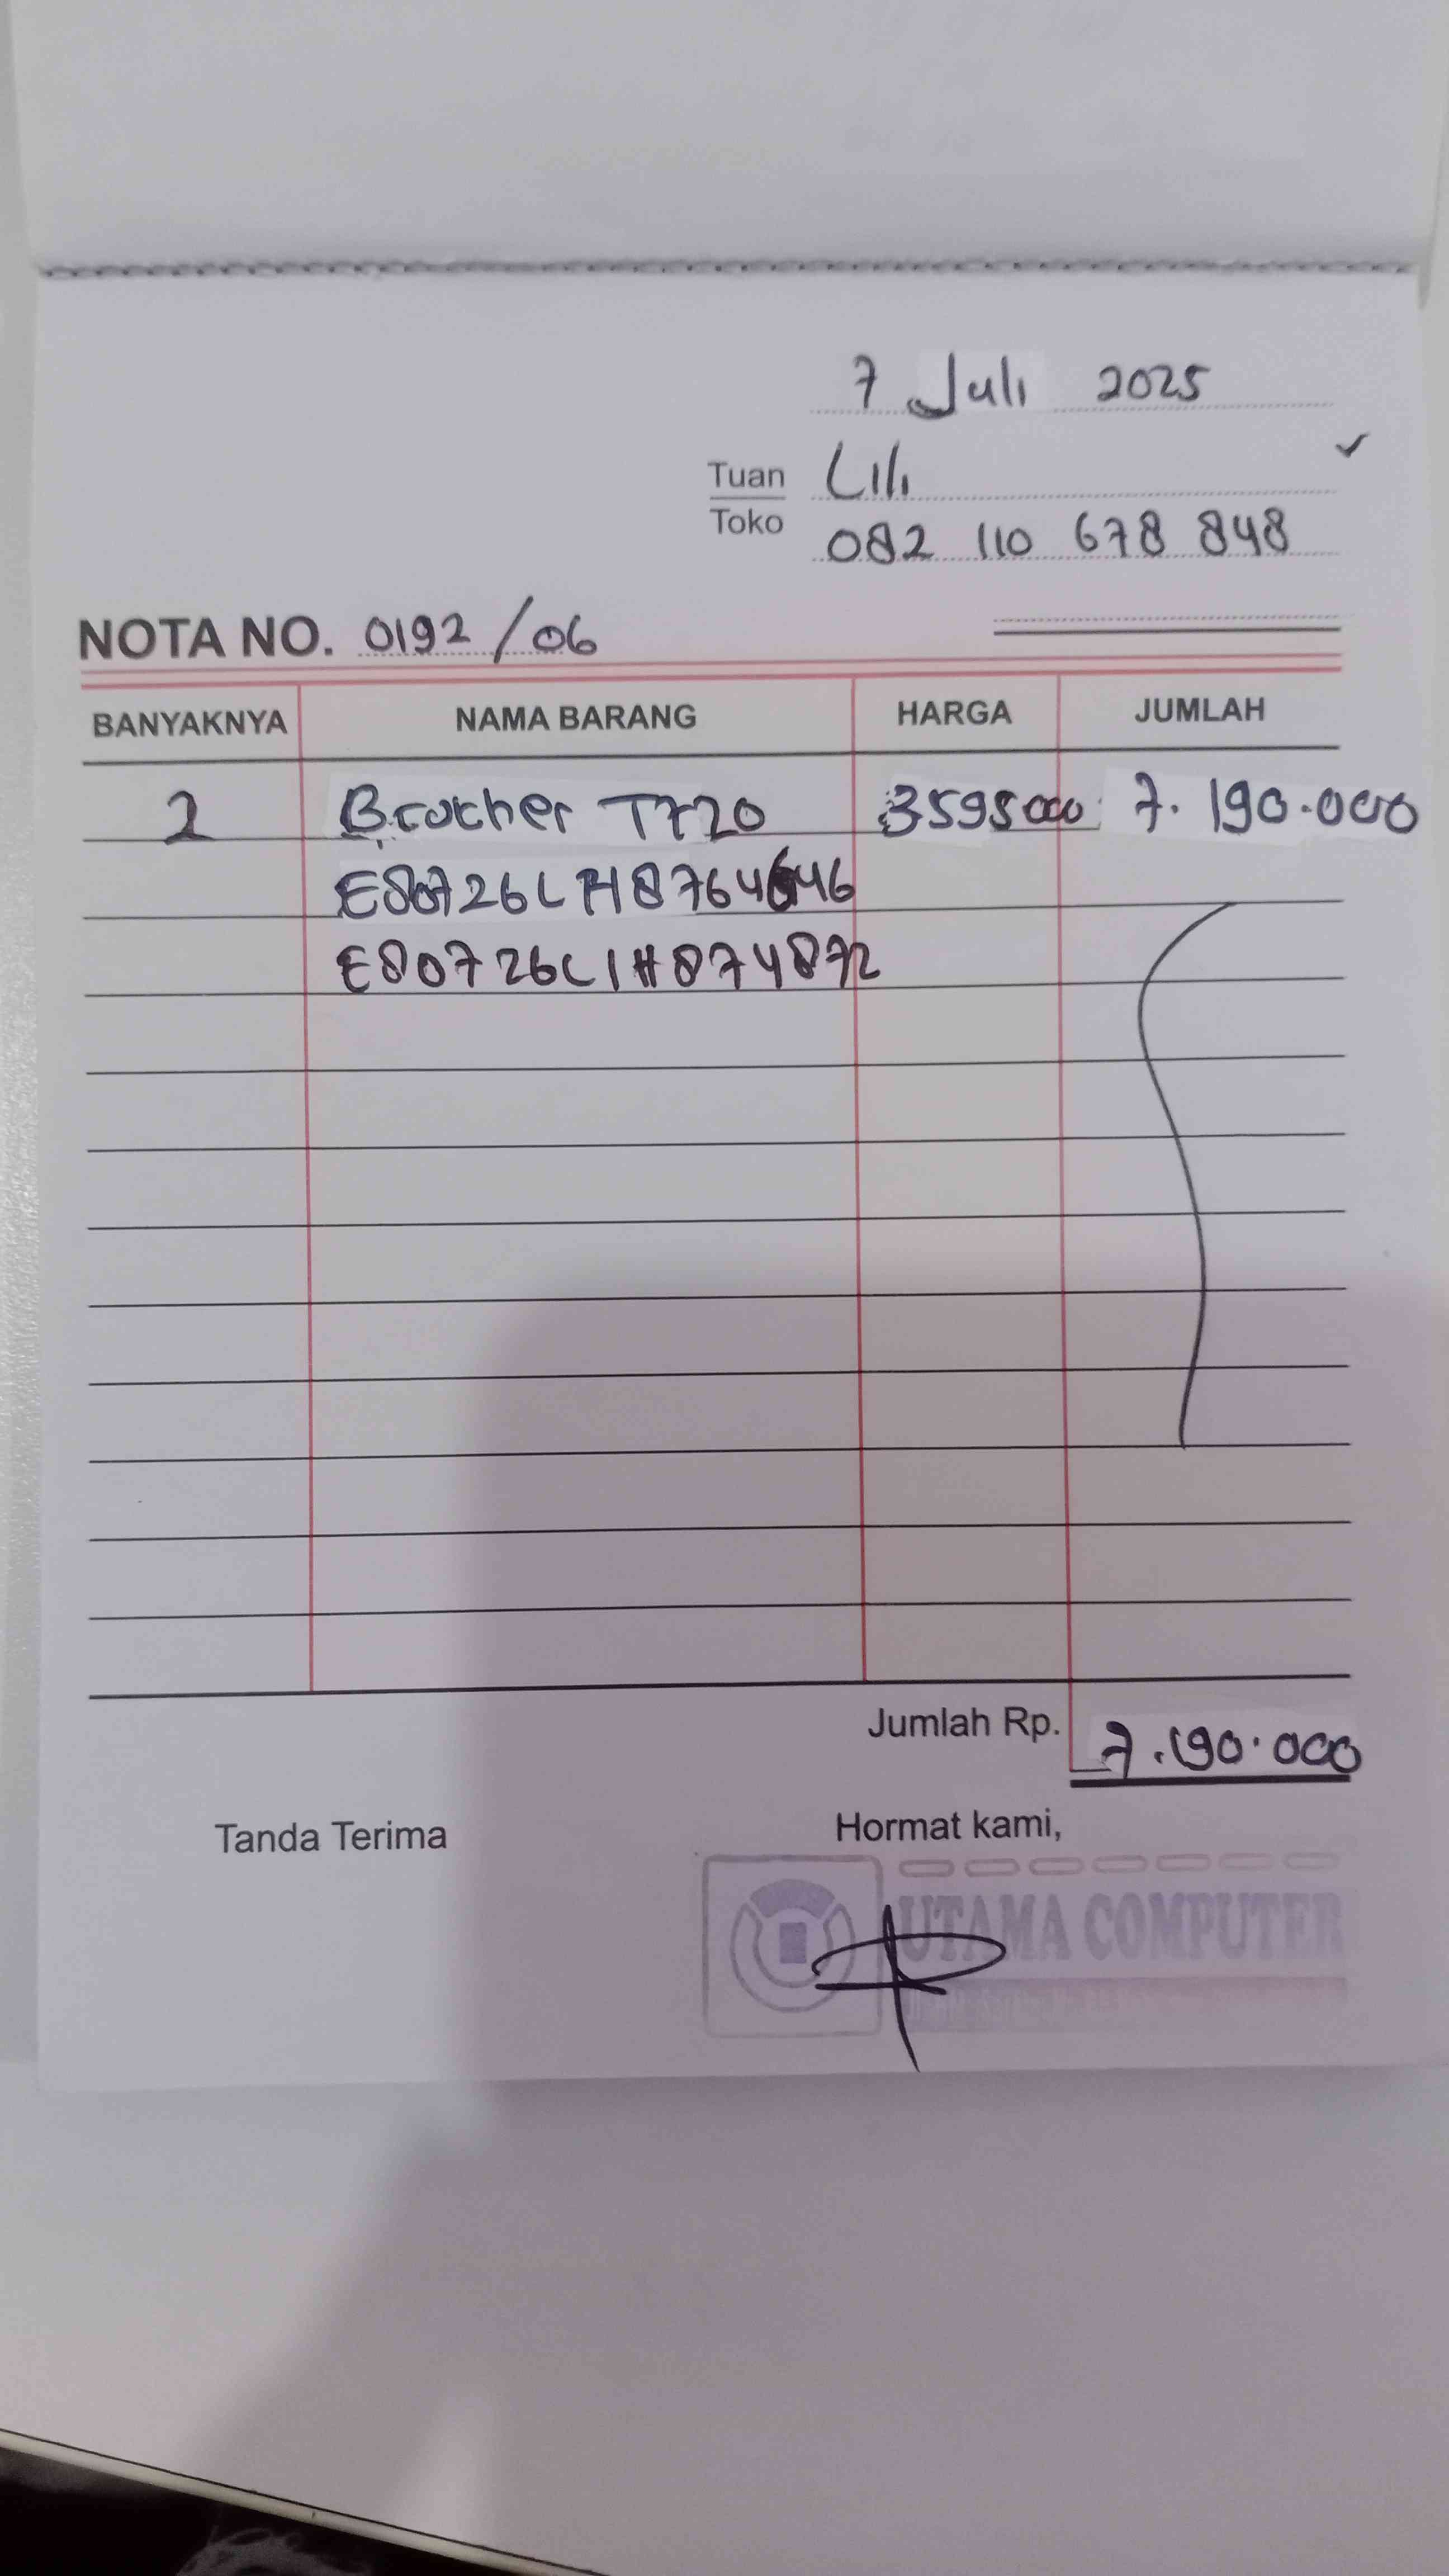 7 Juli 2025
Tuan Lili
Toko 082 110 678 848
NOTA NO. 0192/06
BANYAKNYA NAMA BARANG HARGA JUMLAH
2 Brother T720 3595000 7.190.000
E80726L1H874872
Jumlah Rp. 7.190.000
Tanda Terima Hormat kami,
UTAMA COMPUTER